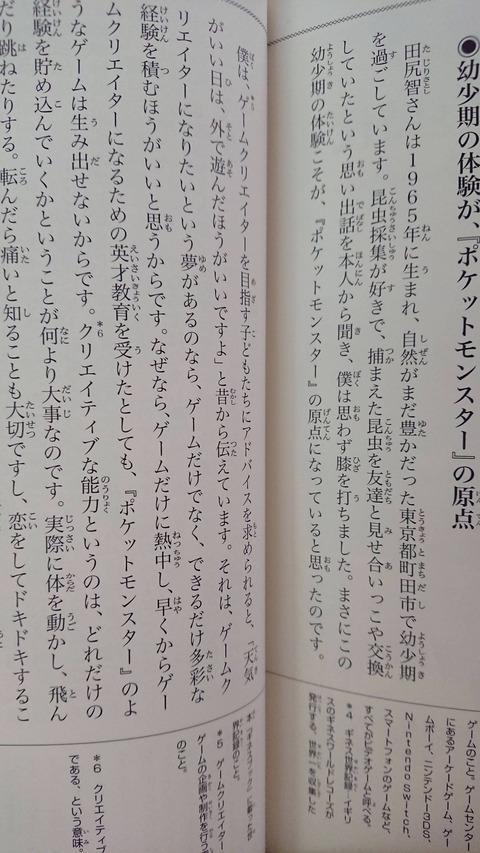 ●幼少期の体験が、『ポケットモンスター』の原点
田尻智さんは1965年に生まれ、自然がまだ豊かだった東京都町田市で幼少期
を過ごしています。昆虫採集が好きで、捕まえた昆虫を友達と見せ合いっこや交換
していたという思い出話を本人から聞き、僕は思わず膝を打ちました。まさにこの
幼少期の体験こそが、『ポケットモンスター』の原点になっていると思ったのです。
ゲームのこと。ゲームセンター
にあるアーケードゲーム、ゲー
ムボーイ、ニンテンドー3DS、
Nintendo Switch、
スマートフォンのゲームなど、
すべてがビデオゲームと呼べる。
*4 ギネス世界記録…イギリ
スのギネスワールドレコーズが
発行する、世界一を収集した
僕は、ゲームクリエイターを目指す子どもたちにアドバイスを求められると、「天気
がいい日は、外で遊んだほうがいいですよ」と昔から伝えています。それは、ゲームク
リエイターになりたいという夢があるのなら、ゲームだけでなく、できるだけ多彩な
経験を積むほうがいいと思うからです。なぜなら、ゲームだけに熱中し、早くからゲー
ムクリエイターになるための英才教育を受けたとしても、『ポケットモンスター』のよ
うなゲームは生み出せないからです。クリエイティブな*6能力というのは、どれだけの
経験を貯め込んでいくかということが何より大事なのです。実際に体を動かし、飛ん
だり跳ねたりする。転んだら痛いと知ることも大切ですし、恋をしてドキドキするこ
界記録のこと。
*5 ゲームクリエイター
ゲームの企画や制作を行う
のこと。
*6 クリエイティブ
である、という意味。